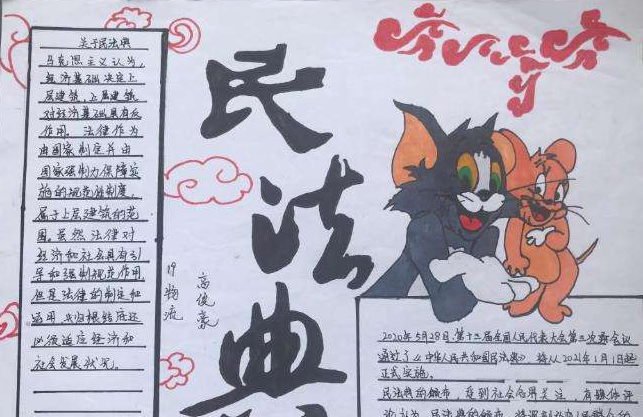 关于民法典
马克思主义认为,
经济基础决定上
层建筑,上层建筑
对经济基础具有反
作用。法律作为
由国家制定并由
国家强制力保障实
施的规范性制度,
属于上层建筑的范
围。虽然法律对
经济和社会具有引
导和强制规范作用
但是法律的制定和
适用 归根结底还
必须适应经济和
社会发展状况。
民
法
典
19物流
高俊豪
2020年5月28日,第十三届全国人民代表大会第三次会议
通过了《中华人民共和国民法典》,将从2021年1月1日起
正式实施。
民法典的颁布,受到社会 关注,有媒体评
论认为,民法典的颁布